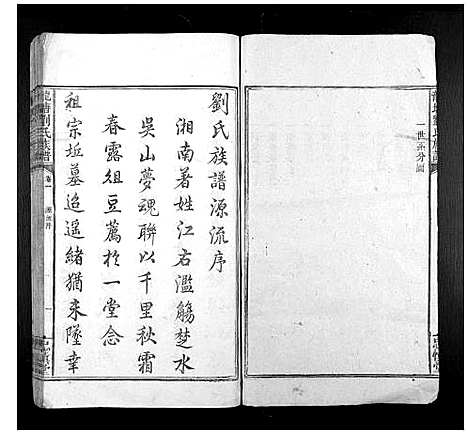 一世系分圖
劉氏族譜源流序
湘南著姓江右濫觴楚水
吳山夢魂聯以千里秋霜
春露俎豆薦於一堂念
祖宗坵墓迢遥緒猶未墜幸
龍塘劉氏族譜
卷一